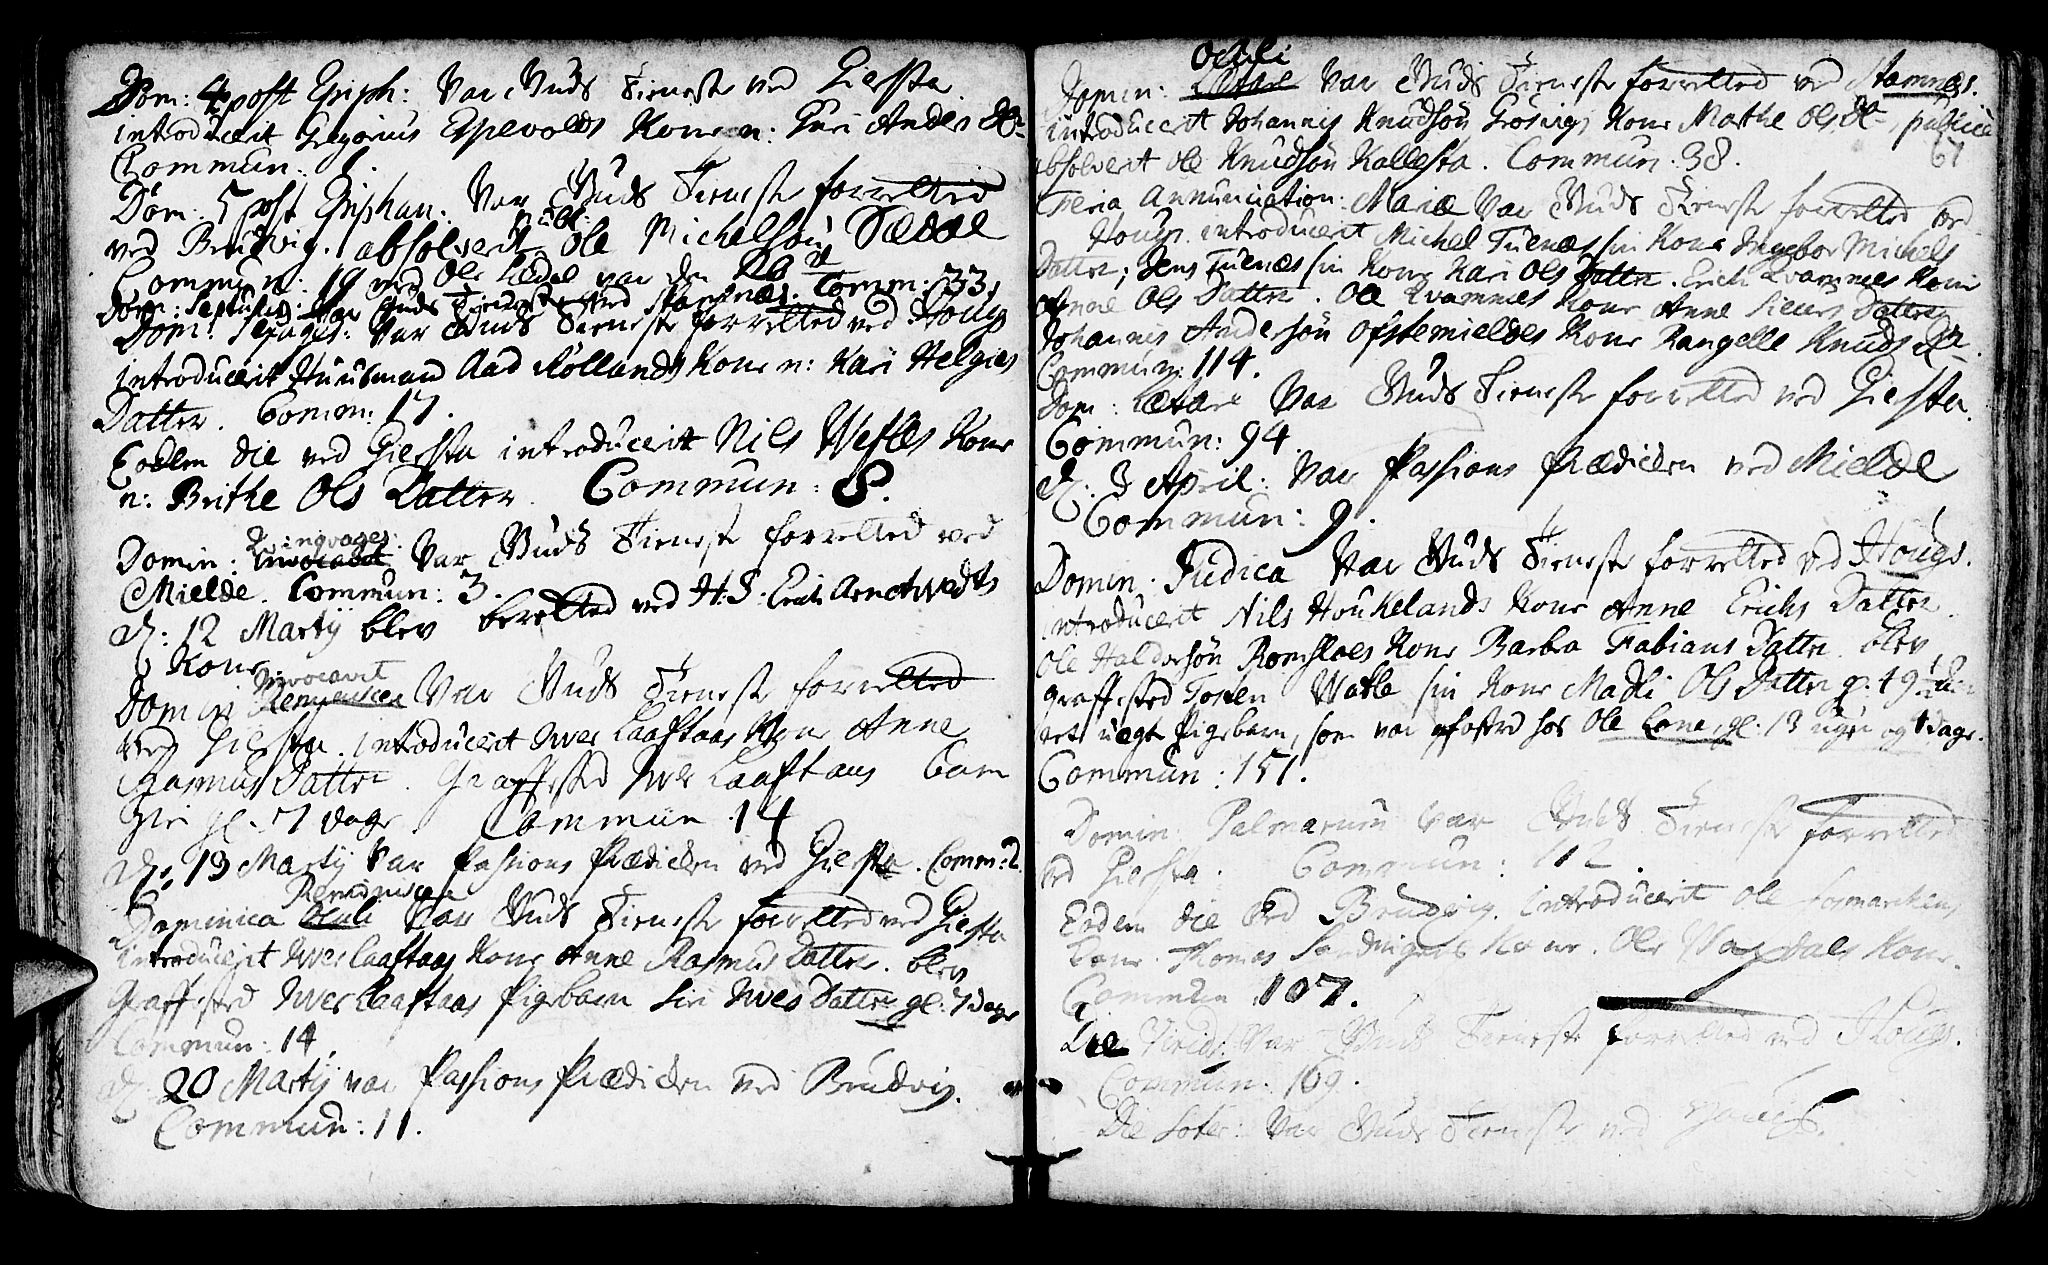 Dom: 4 post Epiph: Var Guds Tieneste ved Giersta
introducerit Gregorius Espevolds Kone n: Guri Anders Dr
Commun: 8.
Dom: 5 post Epiphan: Var Guds Tieneste forretted
ved Brudvig. absolverit publ: Ole Michelsøn Dædal
Commun: 19 med Ole Dædal var den 20de Comm: 33
Dom: Septuag: Var Guds Tieneste ved Stamnæs.
Dom: Sexages: Var Guds Tieneste forretted ved Houg
introducerit Huusmand Aad Røllands Kone n: Kari Helgies
Datter. Comm: 17.
Eodem die ved Giersta introducerit Nils Wefles Kone
n: Brithe Ols Datter. Commun: 8.
Domin: Qvinqvages: Var Guds Tieneste forretted ved
Mielde. Commun: 3.
D: 12 Martij blev beretted ved H: S: Erich Arnetvedts
Kone
Domin Invocavit Var Guds Tieneste forretted
ved Giersta. introducerit Iver Laaftaas Kone Anne
Rasmus Datter. Graffæsted Iver Laaftaas Barn
Siri gl. 7 dage. Commun 14
D: 13 Martij Var Passions Prædicken ved Giersta. Comm: 2.
Dominica Reminiscere Var Guds Tieneste forretted ved Giersta
introducerit Iver Laaftaas Kone Anne Rasmus Datter. blev
Graffæsted Iver Laaftaas Pigebarn Siri Ivers Datter gl: 7 dage
Commun: 14.
D: 20 Martij var Passions Prædicken ved Brudvig.
Commun: 11.
Domin: Oculi Var Guds Tieneste forretted ved Stamnæs.
introducerit Johannis Knudsøn Grøsvigs Kone Marthe Ols Dr publice
67
absolverit Ole Knudsøn Kallesta. Commun: 38.
Feria Annunciation: Mariæ Var Guds Tieneste forretted ved
Houg. introducerit Michel Tuenæs sin Kone Ingebor Michels
Datter; Jens Tuenæs sin Kone Kari Ols Datter. Erich Kvamnes Kone
Ols Datter. Ole Kvamnes Kone Anne Siurs Datter
Johannis Andersøn Ofstemieldes Kone Rangelle Knuds Dr.
Commun: 114.
Dom: Lætare Var Guds Tieneste forretted ved Giersta.
Commun: 94.
D: 3 April: Var Passions Prædicken ved Mielde
Commun: 9.
Domin. Judica Var Guds Tieneste forretted ved Hougs.
introducerit Nils Houkelands Kone Anne Erichs Datter.
Ole Haldorsøn Romsloes Kone Barbra Fabians Datter. blev
graffæsted Torsten Watle sin Kone Madli Ols Datter g. 49 1/2
et uegte Pigebarn, som var opfosted hos Ole Lone, gl: 13 uger og 4 dage.
Commun: 151.
Domin: Palmarum Var Guds Tieneste forretted
ved Giersta. Commun: 112.
Eodem die ved Brudvig. introducerit Ole
Kone. Thomas Sandvigens Kone. Ole Vaxdals Kone.
Commun 107.
Die Virid: Var Guds Tieneste forretted ved Hougs.
Commun: 169.
Die Var Guds Tieneste ved Hougs.